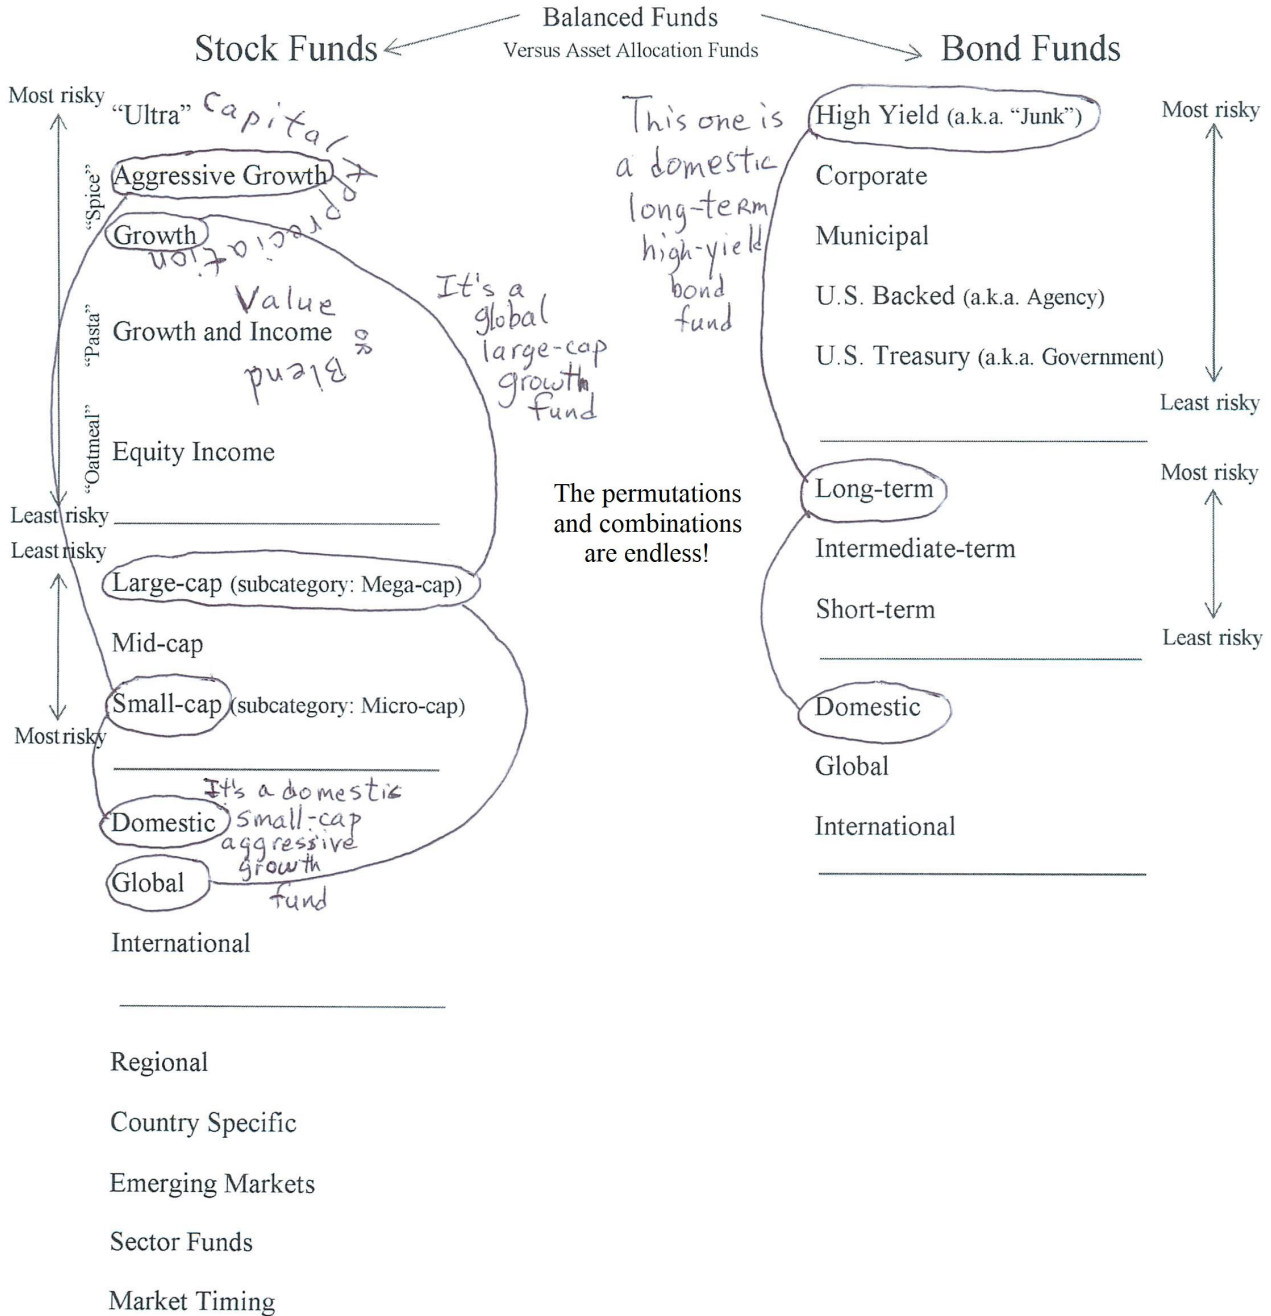 Balanced Funds
Versus Asset Allocation Funds
Stock Funds
Most risky
"Ultra"
Capital Appreciation
"Spice"
Aggressive Growth
Growth
"Pasta"
Value or Blend
Growth and Income
"Oatmeal"
Equity Income
Least risky
It's a
global
large-cap
growth
fund
Least risky
Large-cap (subcategory: Mega-cap)
Mid-cap
Small-cap (subcategory: Micro-cap)
Most risky
Domestic
It's a domestic
small-cap
aggressive
growth
fund
Global
International
Regional
Country Specific
Emerging Markets
Sector Funds
Market Timing
The permutations
and combinations
are endless!
Bond Funds
This one is
a domestic
long-term
high-yield
bond
fund
High Yield (a.k.a. "Junk")
Most risky
Corporate
Municipal
U.S. Backed (a.k.a. Agency)
U.S. Treasury (a.k.a. Government)
Least risky
Most risky
Long-term
Intermediate-term
Short-term
Least risky
Domestic
Global
International